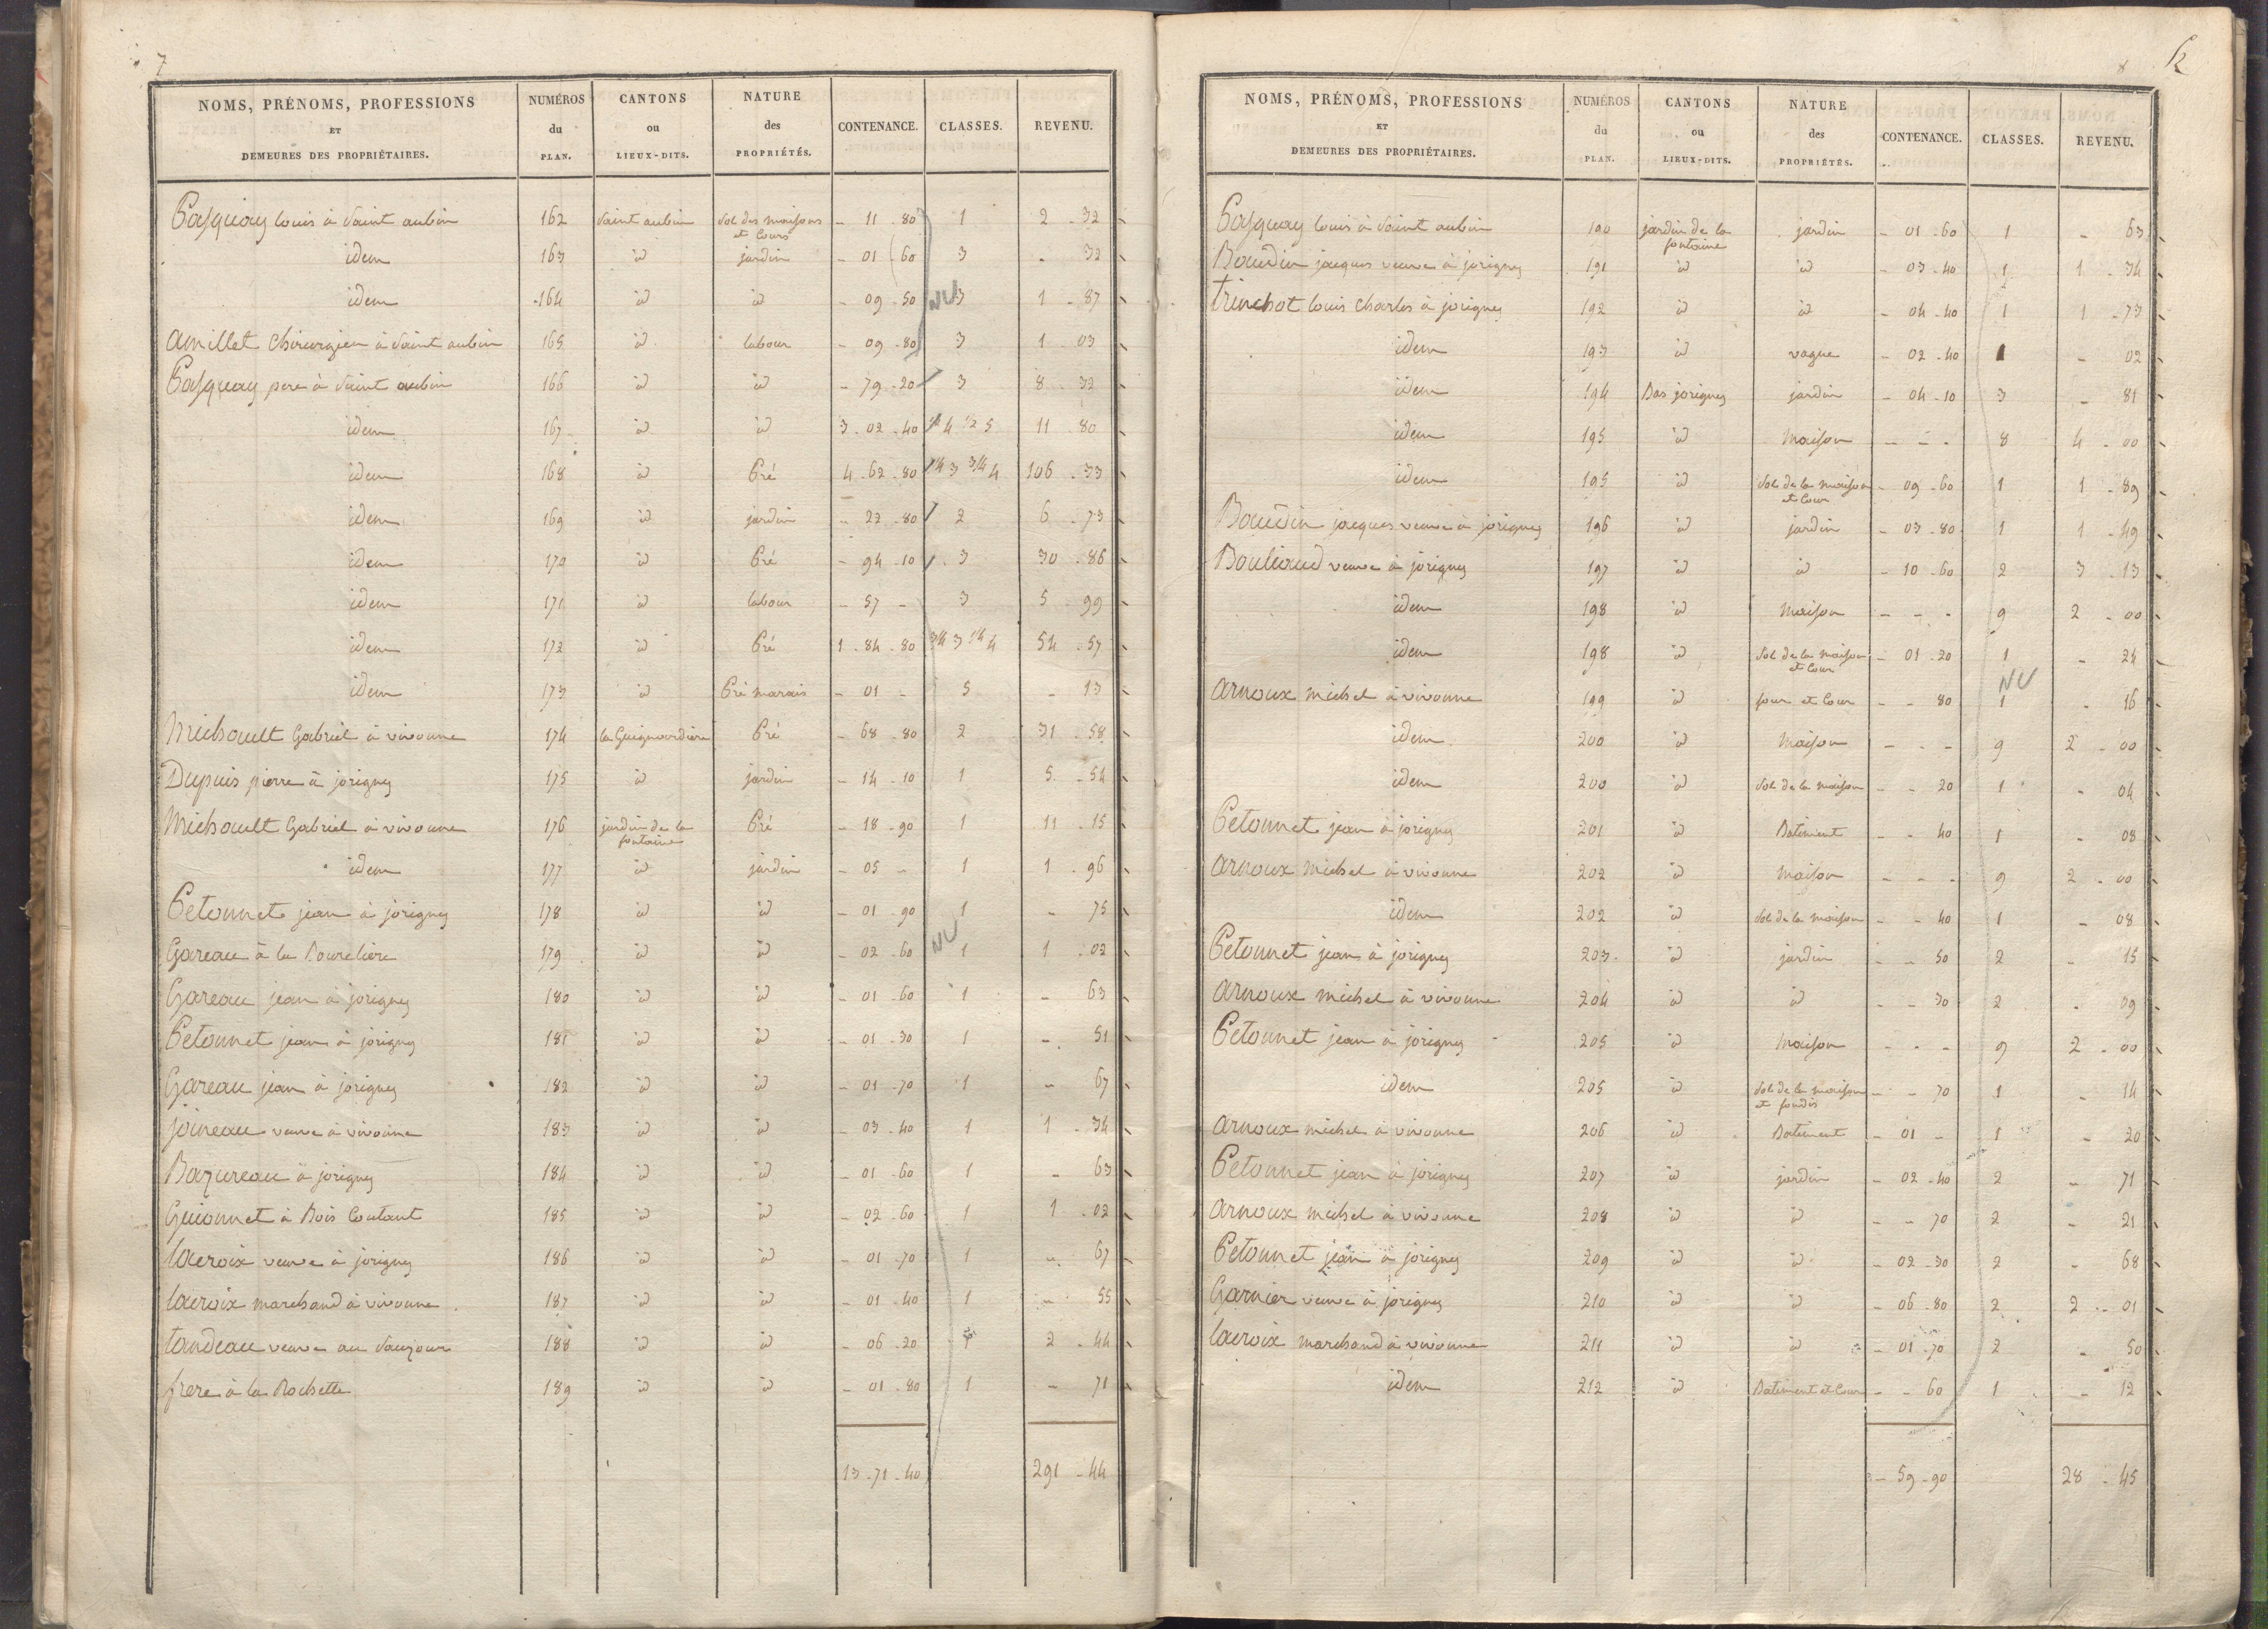 7
NOMS, PRÉNOMS, PROFESSIONS ET DEMEURES DES PROPRIÉTAIRES. NUMÉROS du PLAN. CANTONS ou LIEUX-DITS. NATURE des PROPRIÉTÉS. CONTENANCE. CLASSES. REVENU.
Pasquay louis à Saint aubin 162 Saint aubin Sol des maisons et Cours - 11 - 80 1 2 - 32
idem 163 id jardin - 01 - 60 3 - 32
idem 164 id id - 09 - 50 NV 3 1 - 87
amillet Chirurgien à Saint aubin 165 id labour - 09 - 80 3 1 - 03
Pasquay pere à Saint aubin 166 id id - 79 - 20 3 8 - 32
idem 167 id id 3 - 02 - 40 1/2 4 1/2 5 11 - 80
idem 168 id Pré 4 - 62 - 80 1/4 3 3/4 4 106 - 33
idem 169 id jardin - 22 - 80 2 6 - 73
idem 170 id Pré - 94 - 10 3 30 - 86
idem 171 id labour - 57 - 3 5 - 99
idem 172 id Pré 1 - 84 - 80 3/4 3 1/4 4 54 - 57
idem 173 id Pré marais - 01 - 5 - 13
Michault Gabriel à vivonne 174 la Guignardière Pré - 68 - 80 2 31 - 58
Dupuis pierre à jorigny 175 id jardin - 14 - 10 1 5 - 54
Michault Gabriel à vivonne 176 jardin de la fontaine Pré - 18 - 90 1 11 - 15
idem 177 id jardin - 05 - 1 1 - 96
Petonnet jean à jorigny 178 id id - 01 - 90 1 - 75
Gareau à la Bourelière 179 id id - 02 - 60 NV 1 1 - 02
Gareau jean à jorigny 180 id id - 01 - 60 1 - 63
Petonnet jean à jorigny 181 id id - 01 - 30 1 - 51
Gareau jean à jorigny 182 id id - 01 - 70 1 - 67
joineau veuve à vivonne 183 id id - 03 - 40 1 1 - 34
Bazureau à jorigny 184 id id - 01 - 60 1 - 63
Guionnet à Bois Coutant 185 id id - 02 - 60 1 1 - 02
lacroix veuve à jorigny 186 id id - 01 - 70 1 - 67
lacroix marchand à vivonne 187 id id - 01 - 40 1 - 55
tandeau veuve au Saujour 188 id id - 06 - 20 1 2 - 44
frere à la Rochette 189 id id - 01 - 80 1 - 71
13 - 71 - 40 291 - 44
NOMS, PRÉNOMS, PROFESSIONS ET DEMEURES DES PROPRIÉTAIRES. NUMÉROS du PLAN. CANTONS ou LIEUX-DITS. NATURE des PROPRIÉTÉS. CONTENANCE. CLASSES. REVENU.
Pasquay louis à Saint aubin 190 jardin de la fontaine jardin - 01 - 60 1 - 63
Boudin jacques veuve à jorigny 191 id id - 03 - 40 1 1 - 34
trinchot louis Charles à jorigny 192 id id - 04 - 40 1 1 - 73
idem 193 id vague - 02 - 40 1 - 02
idem 194 Bas jorigny jardin - 04 - 10 3 - 81
idem 195 id Maison - - - 8 4 - 00
idem 195 id Sol de la maison et Cour - 09 - 60 1 1 - 89
Boudin jacques veuve à jorigny 196 id jardin - 03 - 80 1 1 - 49
Bouliaud veuve à jorigny 197 id id - 10 - 60 2 3 - 13
idem 198 id Maison - - - 9 2 - 00
idem 198 id Sol de la maison et Cour - 01 - 20 1 - 24
arnoux michel à vivonne 199 id four et Cour - - 80 NV 1 - 16
idem 200 id Maison - - - 9 2 - 00
idem 200 id Sol de la maison - - 20 1 - 04
Petonnet jean à jorigny 201 id Batiment - - 40 1 - 08
arnoux michel à vivonne 202 id Maison - - - 9 2 - 00
idem 202 id Sol de la maison - - 40 1 - 08
Petonnet jean à jorigny 203 id jardin - - 50 2 - 15
arnoux michel à vivonne 204 id id - - 30 2 - 09
Petonnet jean à jorigny 205 id Maison - - - 9 2 - 00
idem 205 id Sol de la maison et foudis - - 70 1 - 14
arnoux michel à vivonne 206 id Batiment - 01 - 1 - 20
Petonnet jean à jorigny 207 id jardin - 02 - 40 2 - 71
arnoux michel à vivonne 208 id id - - 70 2 - 21
Petonnet jean à jorigny 209 id id - 02 - 30 2 - 68
Garnier veuve à jorigny 210 id id - 06 - 80 2 2 - 01
lacroix marchand à vivonne 211 id id - 01 - 70 2 - 50
idem 212 id Batiment et Cour - - 60 1 - 12
- 59 - 90 28 - 45